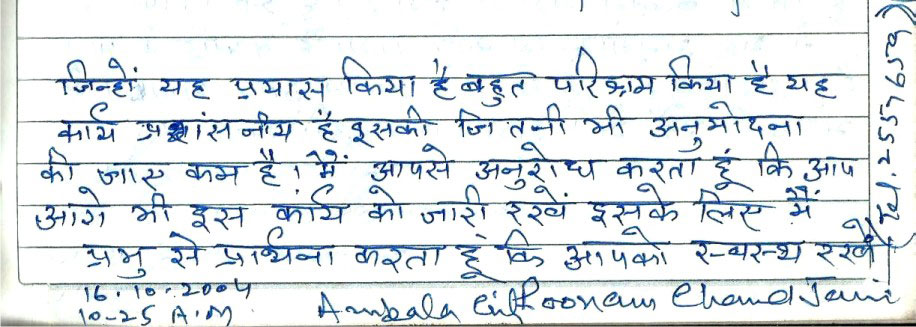 जिन्हों यह प्रयास किया है बहुत परिश्रम किया है यह
कार्य प्रशंसनीय है इसकी जितनी भी अनुमोदना
की जाए कम है। मैं आपसे अनुरोध करता हूं कि आप
आगे भी इस कार्य को जारी रखें इसके लिए मैं
प्रभु से प्रार्थना करता हूं कि आपको स्वस्थ रखें
16.10.2004
10-25 A.M
Ambala Chand Jain
Tel. 2557659)